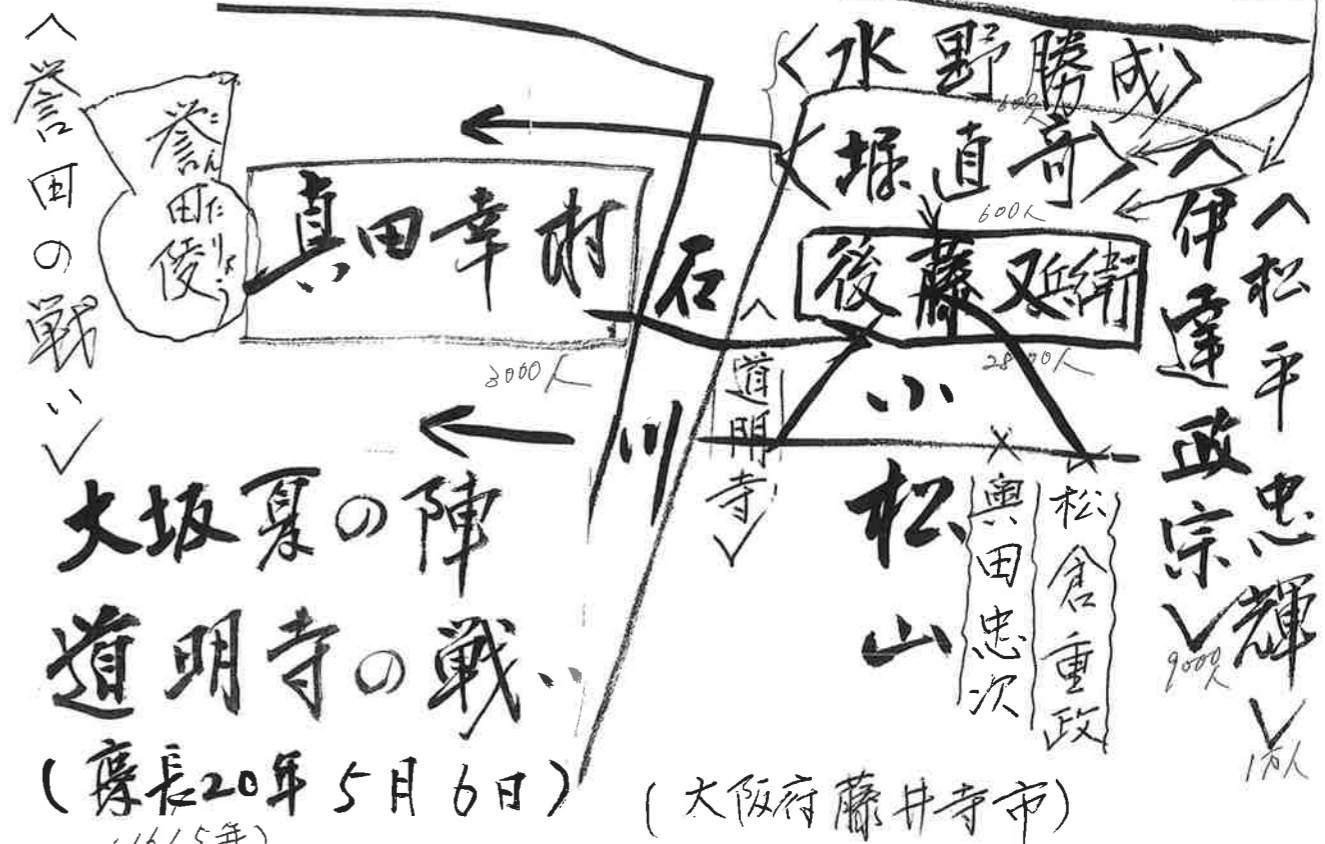 〈誉田の戦い〉
誉田陵
こんだりょう
真田幸村
3000人
石川
〈水野勝成〉
600人
〈堀直寄〉
600人
後藤又兵衛
2800人
〈道明寺〉
小松山
奥田忠次
松倉重政
〈伊達政宗〉
9000人
〈松平忠輝〉
1万人
大坂夏の陣
道明寺の戦い
(慶長20年5月6日)
(1615年)
(大阪府藤井寺市)